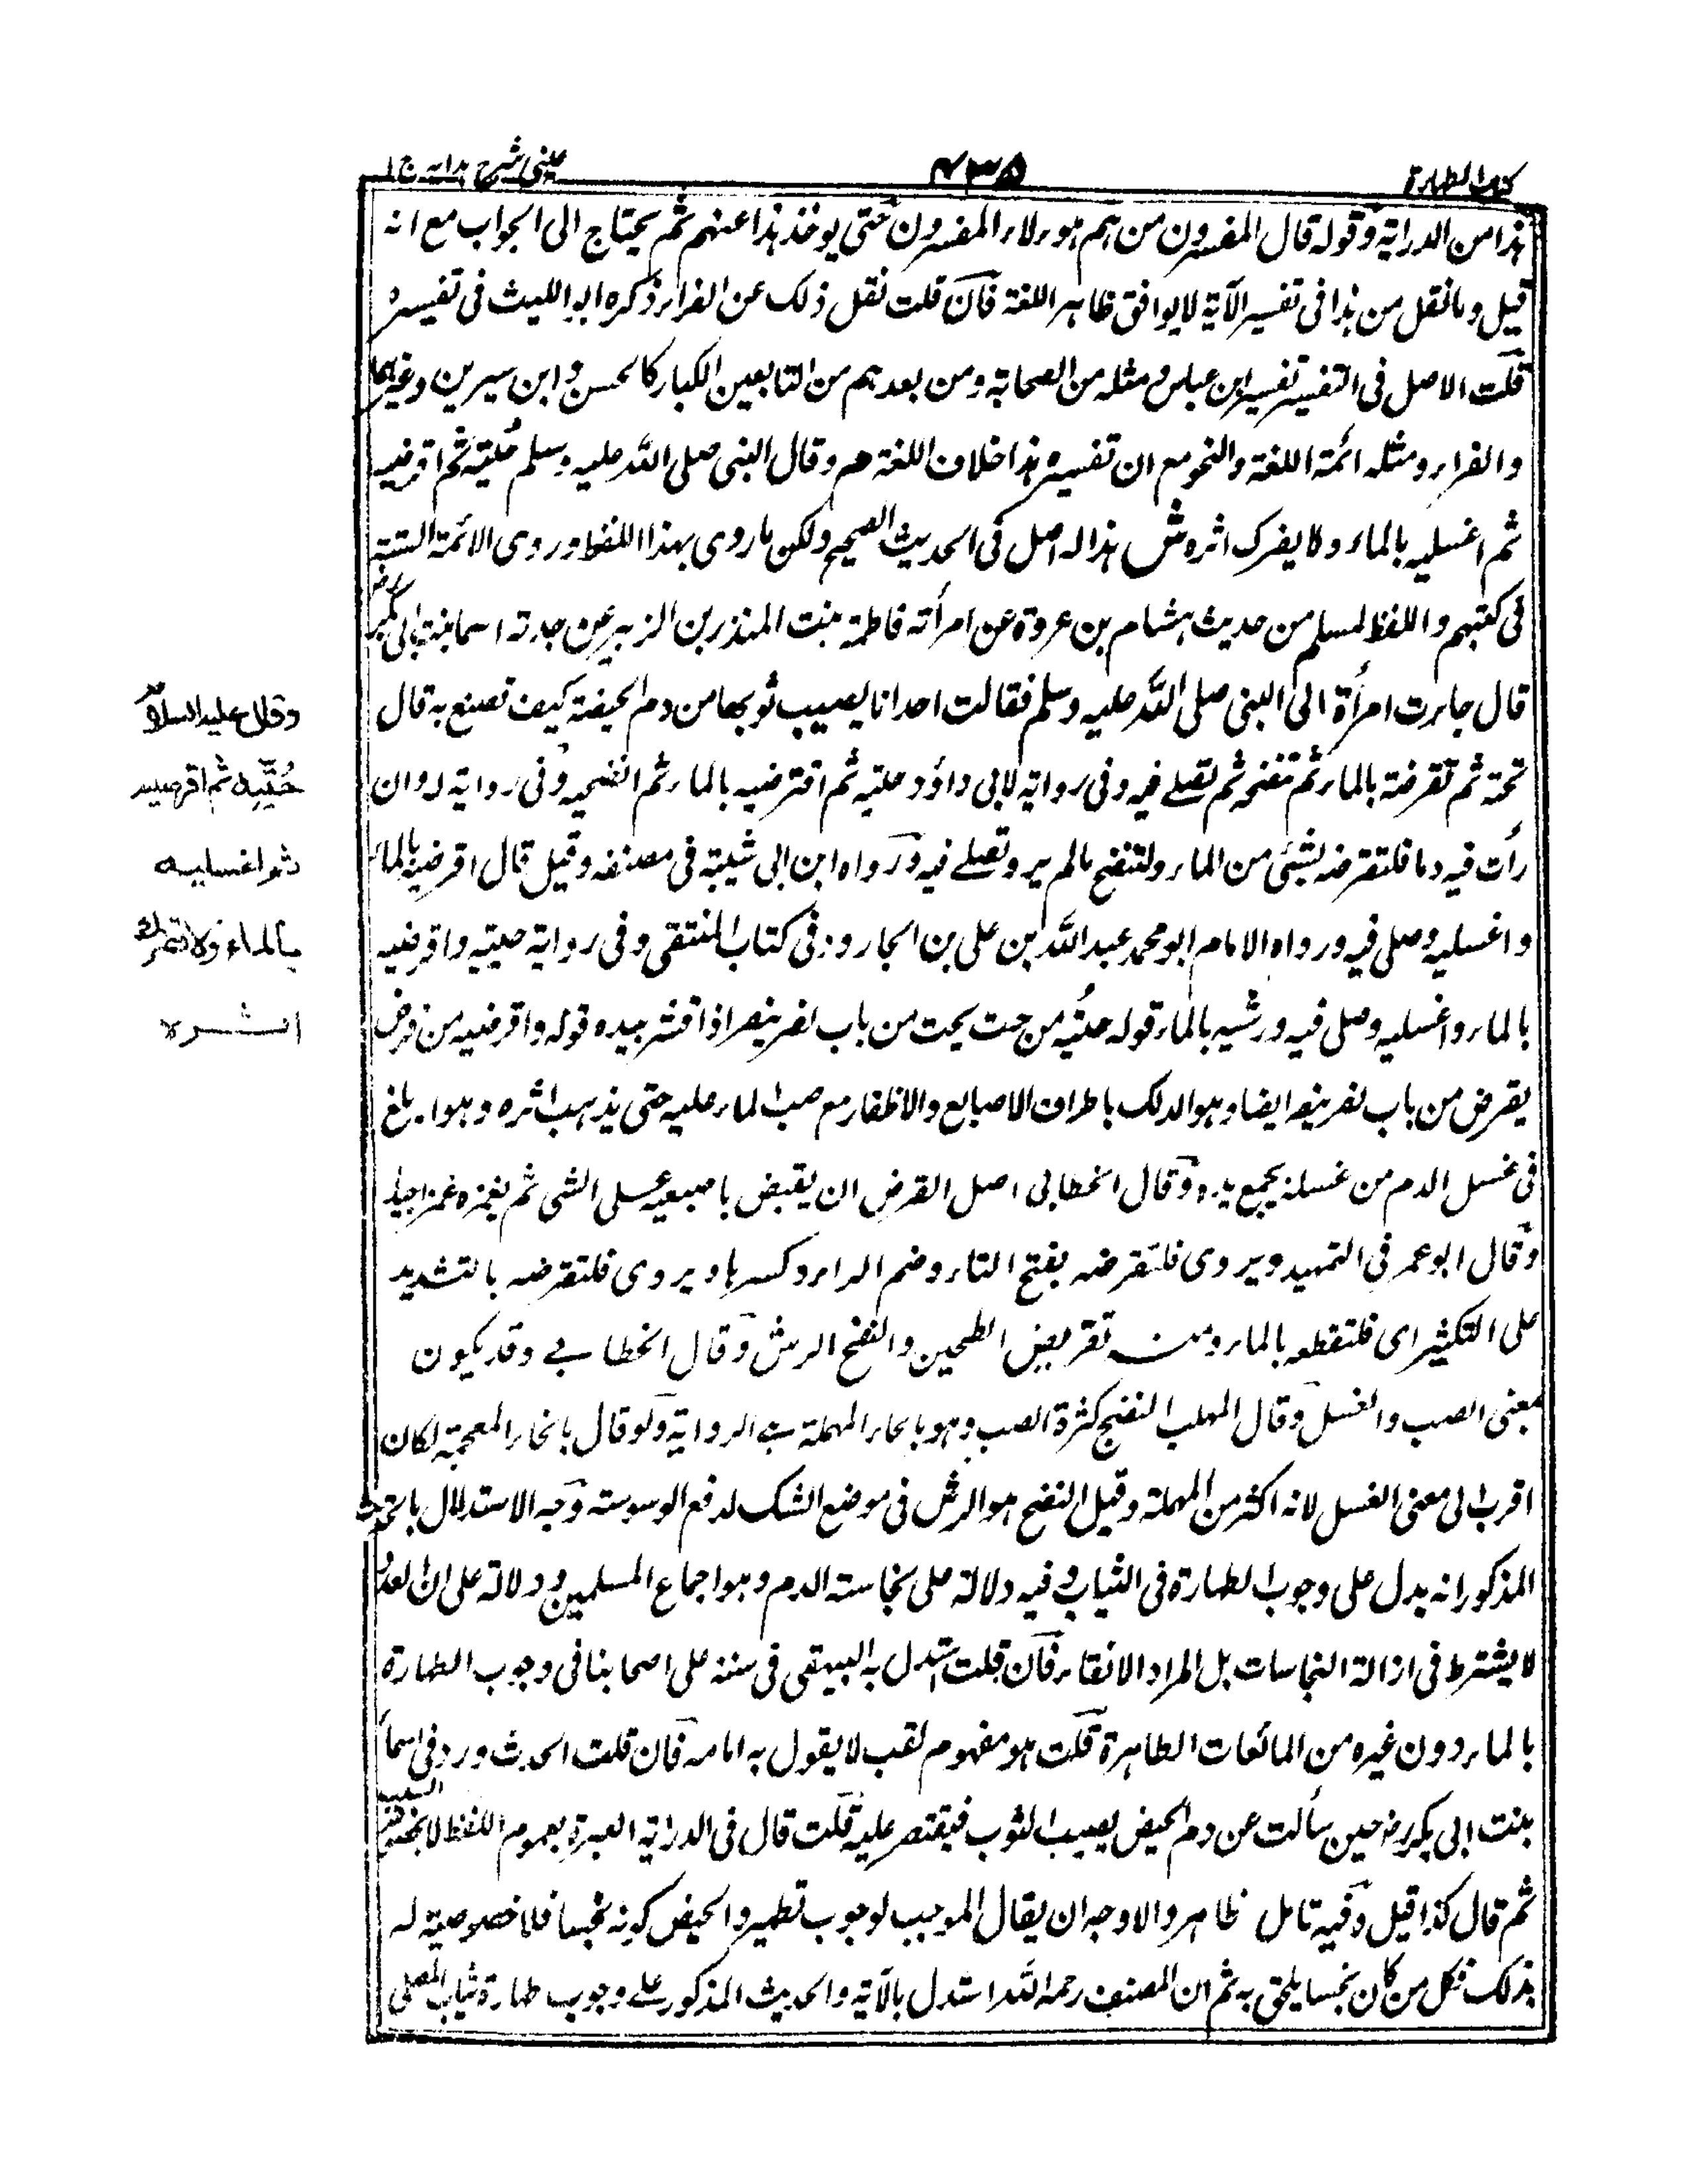 كتاب الطهارة
۴۳۵
عینی شرح ہدایہ ج ۱
هذا من الدراية وقوله قال المفسرون من هم هؤلاء المفسرون حتى يوخذ هذا عنهم ثم يحتاج الى الجواب مع انه
قيل وما نقل من هذا في تفسير الآية لا يوافق ظاهر اللغة فان قلت نقل ذلك عن الفراء ذكره ابو الليث في تفسيره
قلت الاصل في التفسير تفسير ابن عباس ومثله من الصحابة ومن بعدهم من التابعين الكبار كالحسن وابن سيرين وغيرهما
والفراء ومثله ائمة اللغة والنحو مع ان تفسيره هذا خلاف اللغة هم وقال النبي صلى الله عليه وسلم حتيه ثم اقرضيه
ثم اغسليه بالماء ولا يضرك اثره ش هذا له اصل في الحديث الصحيح ولكن ما روى بهذا اللفظ وروى الائمة الستة
في كتبهم واللفظ لمسلم من حديث هشام بن عروة عن امرأته فاطمة بنت المنذر بن الزبير عن جدته اسما بنت ابى بكر رض
قال جاءت امرأة الى النبي صلى الله عليه وسلم فقالت احدانا يصيب ثوبها من دم الحيضة كيف تصنع به قال
تحته ثم تقرضة بالماء ثم تنضحه ثم تصلے فيه وفى رواية لابى داؤد حتيه ثم اقترضيه بالماء ثم انضحيه وفى رواية له وان
رأت فيه دما فلتقرضه بشئ من الماء ولتنضح مالم ير وتصلے فيه ورواه ابن ابى شيبة فى مصنفه وقيل قال اقرضيه بالماء
واغسليه وصلى فيه ورواه الامام ابو محمد عبد الله بن على بن الجارود فى كتاب المنتقى وفى رواية حتيه واقرضيه
بالماء واغسليه وصلى فيه ورشيه بالماء قوله حتيه من حت يحت من باب نصر ينصر اذا قشر بيده قوله واقرضيه من قرض
يقرض من باب نصر ينصر ايضا وهو الدلك باطراف الاصابع والاظفار مع صب الماء عليه حتى يذهب اثره وهو ابلغ
فى غسل الدم من غسله بجميع يده وقال الخطابى اصل القرض ان يقبض باصبعيه على الشى ثم يغمزه غمزا جيدا
وقال ابو عمر فى التمهيد ويروى فلتقرضه بفتح التاء وضم الراء وكسرها ويروى فلتقرضه بالتشديد
على التكثير اى فلتقطعه بالماء ومنه تقريض العجين والنضح الرش وقال الخطابے وقد يكون
بمعنى الصب والغسل وقال المهلب النضح كثرة الصب وهو بالحاء المهملة فى الرواية ولو قال بالخاء المعجمة لكان
اقرب الى معنى الغسل لانه اكثر من المهملة وقيل النضح هو الرش فى موضع الشك لدفع الوسوسة وجه الاستدلال بالحديث
المذكور انه يدل على وجوب الطهارة فى الثياب وفيه دلالة على نجاسة الدم وهو اجماع المسلمين ودلالة على ان العدد
لا يشترط فى ازالة النجاسات بل المراد الانقاء فان قلت استدل به البيهقى فى سننه على اصحابنا فى وجوب الطهارة
بالماء دون غيره من المائعات الطاهرة قلت هو مفهوم لقب لا يقول به امامه فان قلت الحديث ورد فى اسماء
بنت ابى بكر رض حين سألت عن دم الحيض يصيب الثوب فيقتصر عليه قلت قال فى الدراية العبرة بعموم اللفظ لا بخصوص السبب
ثم قال كذا قيل وفيه تامل ظاهر والاوجه ان يقال الموجب لوجوب تطهير والحيض كونه نجسا فلا خصوصية له
بذلك فكل من كان نجسا يلحق به ثم ان المصنف رحمه الله استدل بالآية والحديث المذكور على وجوب طهارة ثياب المصلى
وقال عليه السلام
حُتِّيه ثم اقرصيه
ثم اغسليه
بالماء ولا يضرك
اثره